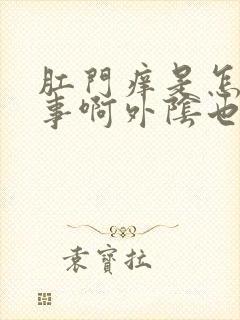 肛門痒是怎
事啊外陰也
袁寶拉